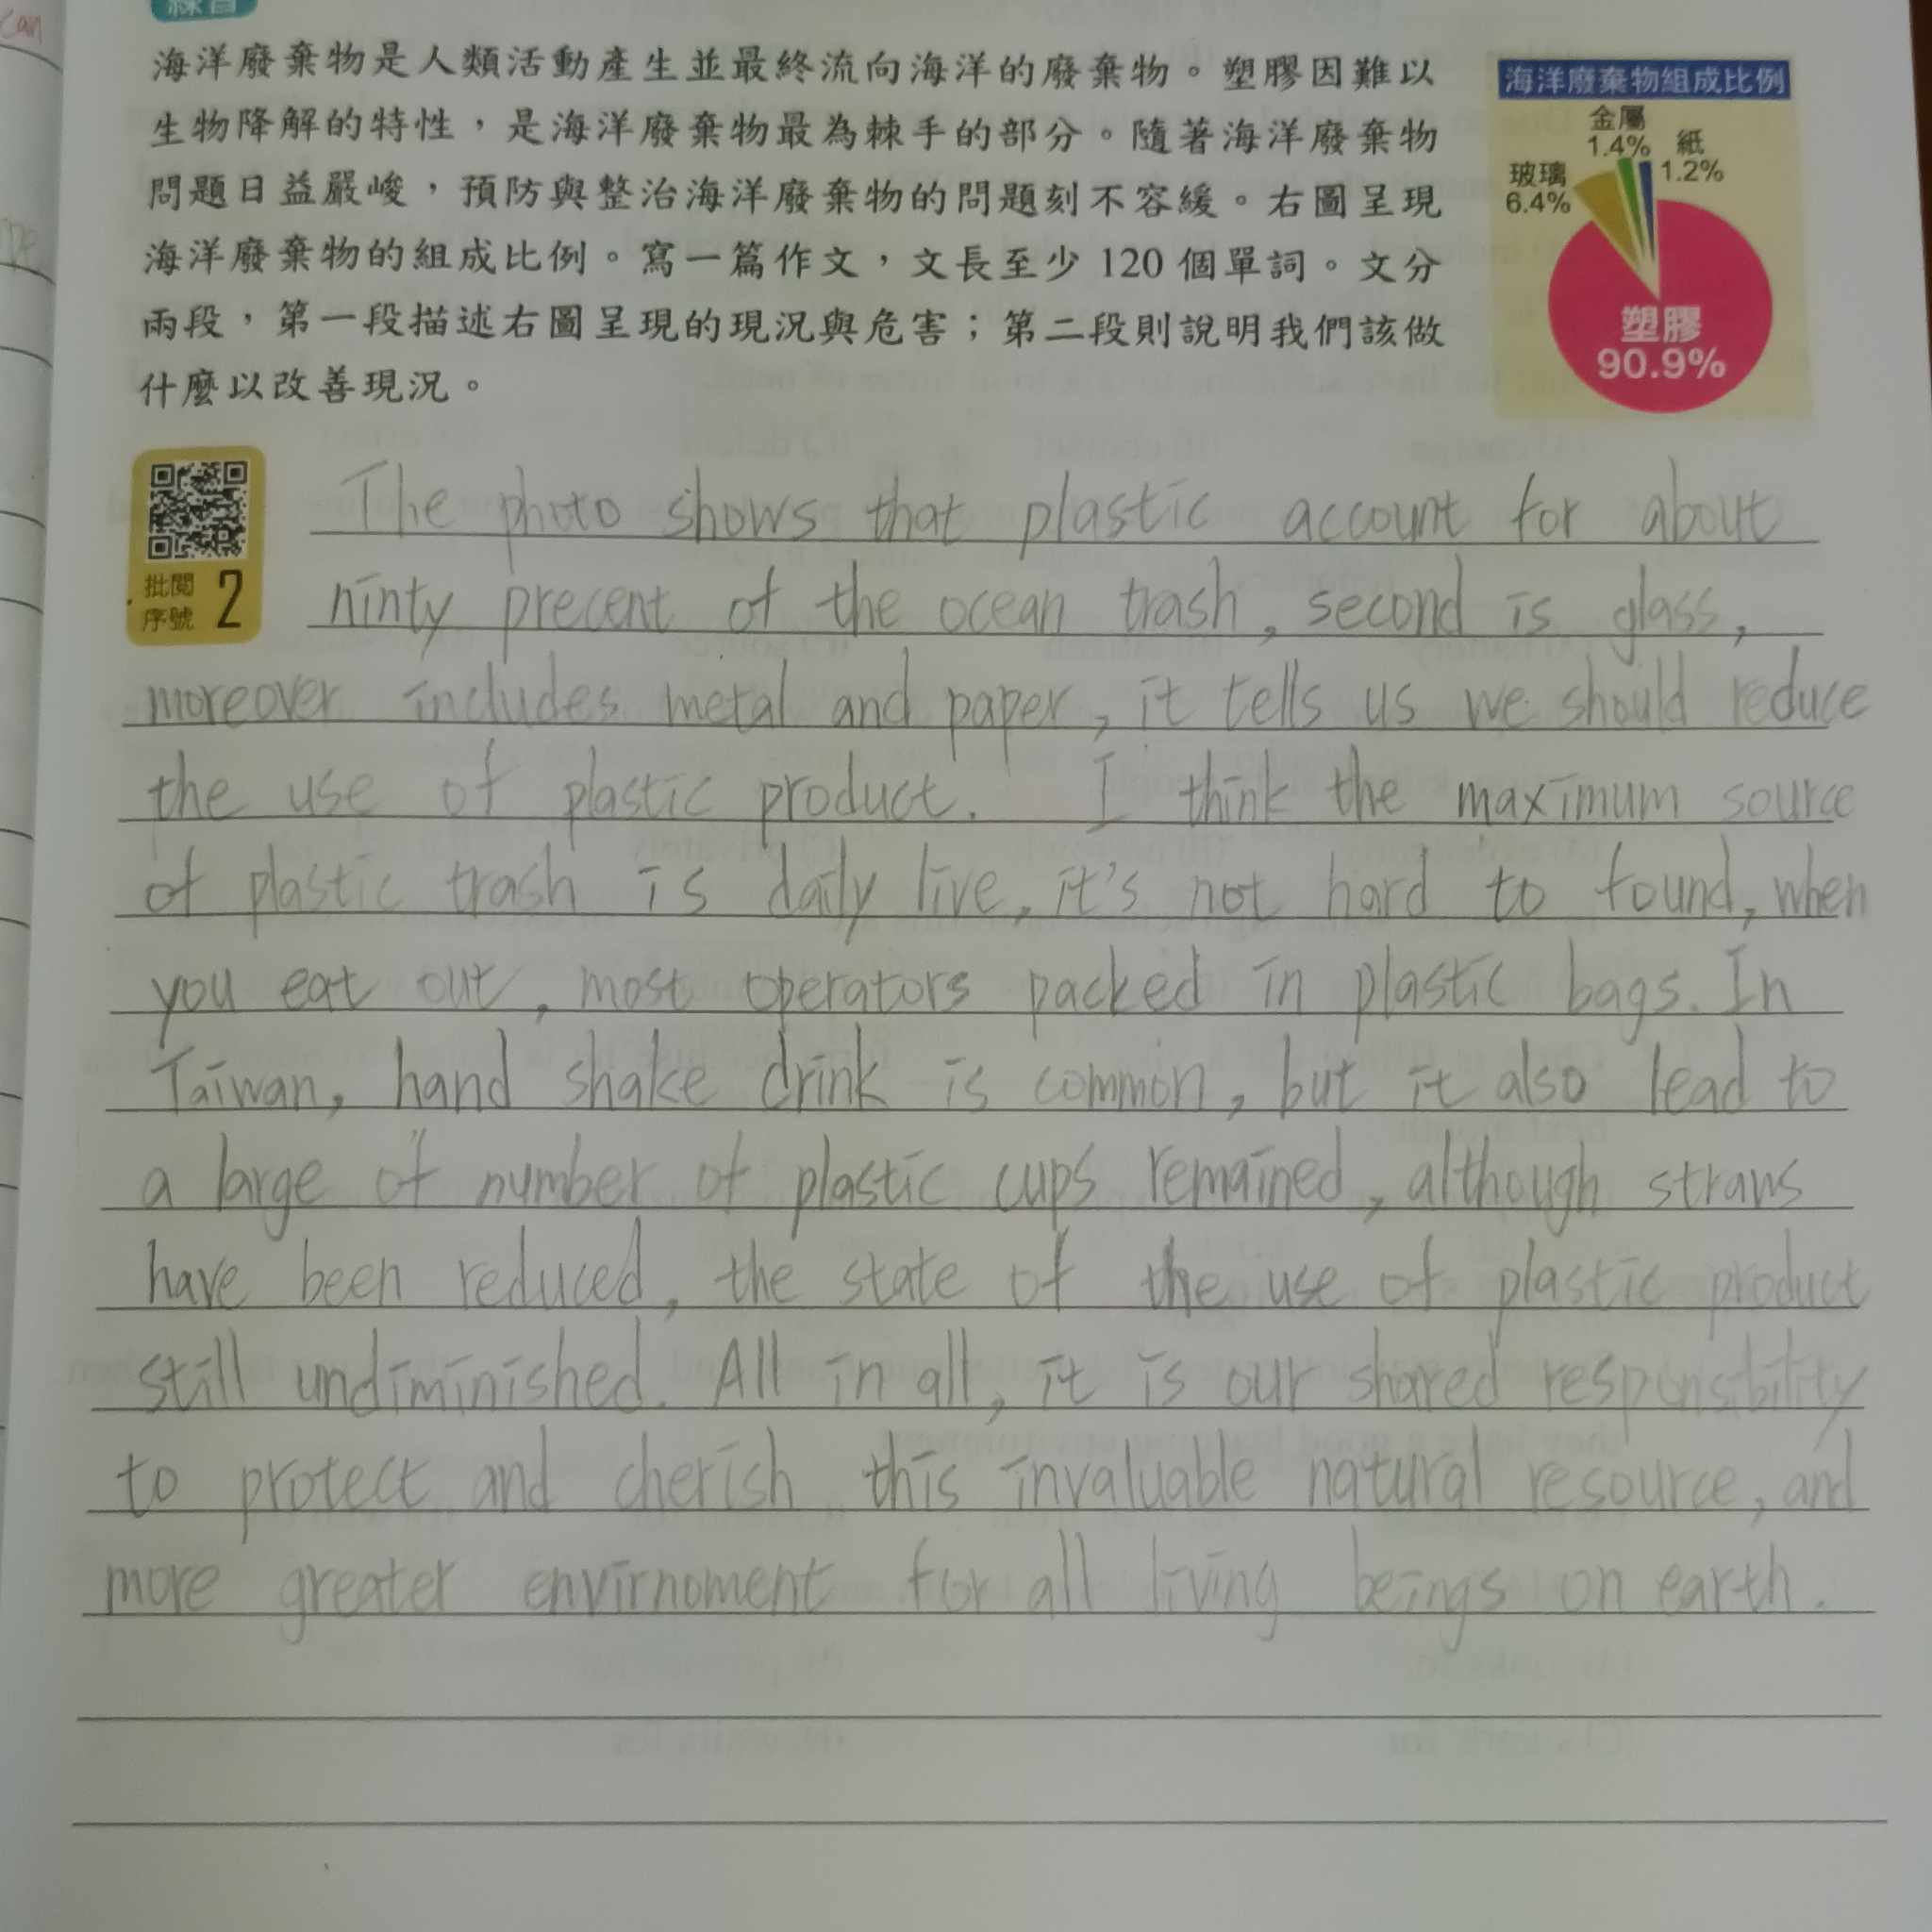 練習
海洋廢棄物是人類活動產生並最終流向海洋的廢棄物。塑膠因難以
生物降解的特性，是海洋廢棄物最為棘手的部分。隨著海洋廢棄物
問題日益嚴峻，預防與整治海洋廢棄物的問題刻不容緩。右圖呈現
海洋廢棄物的組成比例。寫一篇作文，文長至少 120 個單詞。文分
兩段，第一段描述右圖呈現的現況與危害；第二段則說明我們該做
什麼以改善現況。
海洋廢棄物組成比例
金屬
1.4%
紙
1.2%
玻璃
6.4%
塑膠
90.9%
批閱
序號 2
The photo shows that plastic account for about
ninty precent of the ocean trash, second is glass,
moreover includes metal and paper, it tells us we should reduce
the use of plastic product. I think the maximum source
of plastic trash is daily live, it's not hard to found, when
you eat out, most operators packed in plastic bags. In
Taiwan, hand shake drink is common, but it also lead to
a large of number of plastic cups remained, although straws
have been reduced, the state of the use of plastic product
still undiminished. All in all, it is our shared responsibility
to protect and cherish this invaluable natural resource, and
more greater envirnoment for all living beings on earth.
can